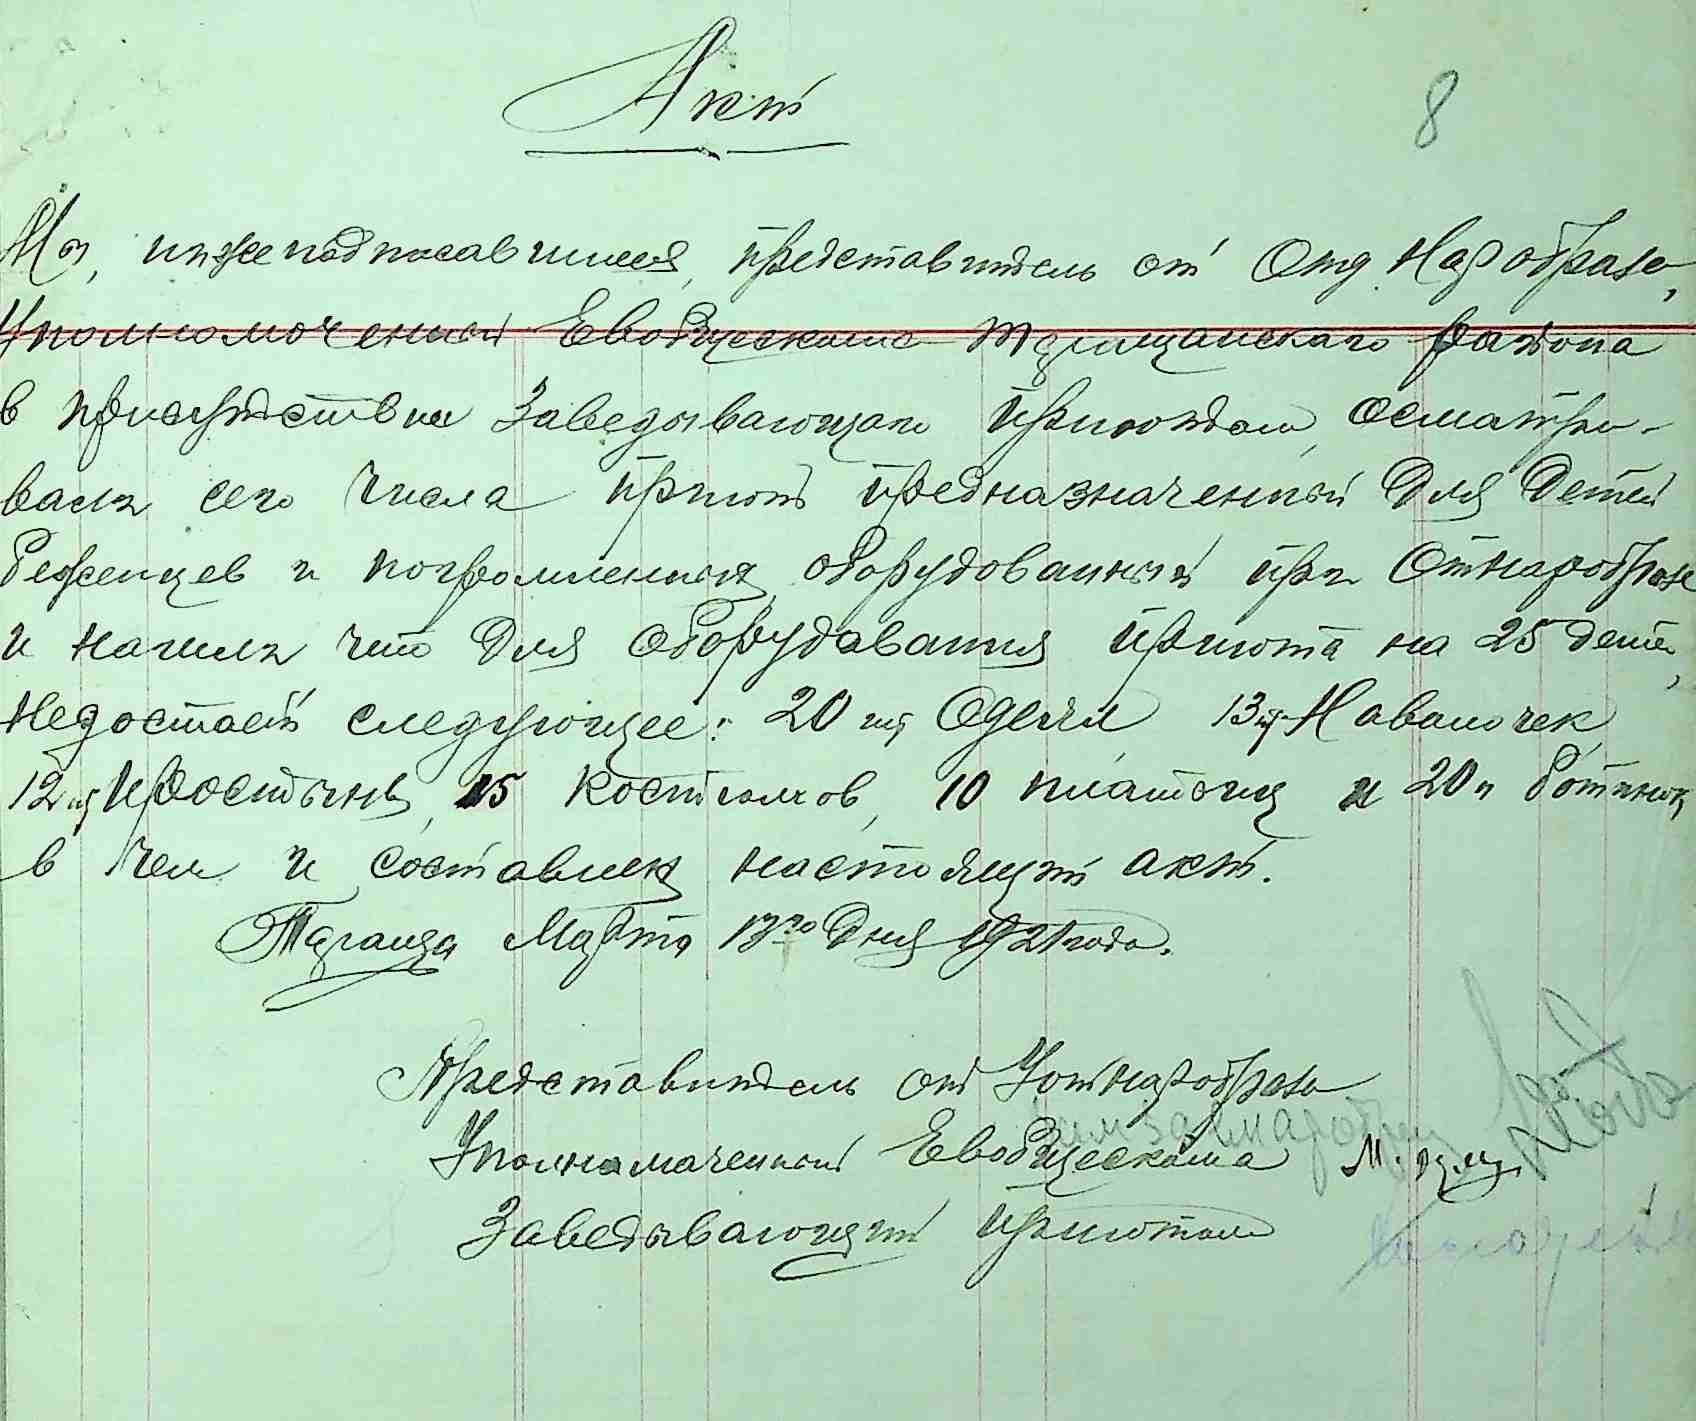 Акт
8
Мы, нижеподписавшиеся, представитель от Отд. Наробраза,
Уполномоченный Евобщескома Таращанскаго района
в присутствии Заведывающаго приютом, осматри-
вали сего числа приют предназначенный для детей
беженцев и погромленных, оборудованный при Отнаробразе
и нашли что для оборудавания приюта на 25 детей,
недостает следующее: 20 шт Одеял, 13 шт Наволочек,
12 шт Простынь, 15 костюмов, 10 платьиц и 20 п ботинок,
в чем и составлен настоящий акт.
Тараща Марта 13го дня 1921 года.
Представитель от Уотнаробраза
Уполномаченный Евобщескома М.
Заведывающий приютом